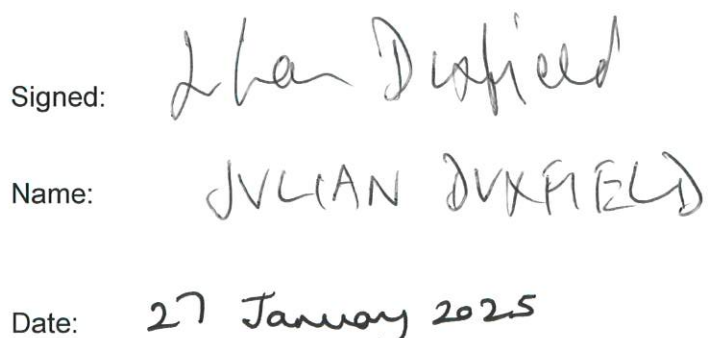 Signed: Julian Duxfield
Name: JULIAN DUXFIELD
Date: 27 January 2025